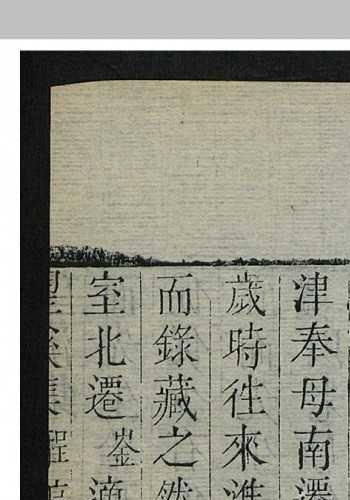 津奉母南還
歲時往來淮
而錄藏之然
室北遷崟滴
集程